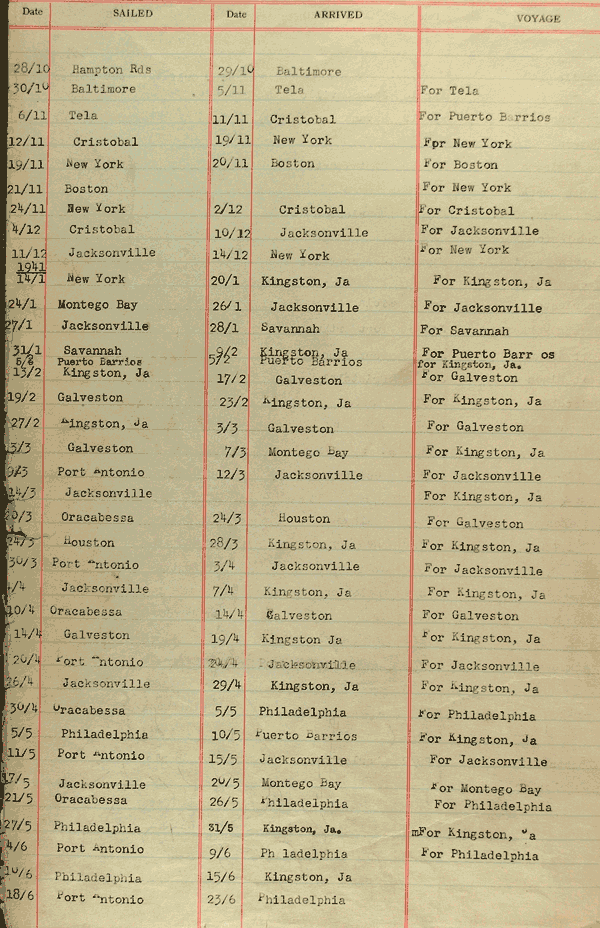 Date SAILED Date ARRIVED VOYAGE
28/10 Hampton Rds 29/10 Baltimore
30/10 Baltimore 5/11 Tela For Tela
6/11 Tela 11/11 Cristobal For Puerto B rrios
12/11 Cristobal 19/11 New York For New York
19/11 New York 20/11 Boston For Boston
21/11 Boston For New York
24/11 New York 2/12 Cristobal For Cristobal
4/12 Cristobal 10/12 Jacksonville For Jacksonville
11/12 Jacksonville 14/12 New York For New York
1941
14/1 New York 20/1 Kingston, Ja For Kingston, Ja
24/1 Montego Bay 26/1 Jacksonville For Jacksonville
27/1 Jacksonville 28/1 Savannah For Savannah
31/1 Savannah 9/2 Kingston, Ja For Puerto Barr os
Puerto Barrios 5/2 Puerto Barrios for Kingston, Ja.
13/2 Kingston, Ja 17/2 Galveston For Galveston
19/2 Galveston 23/2 Kingston, Ja For Kingston, Ja
27/2 Kingston, Ja 3/3 Galveston For Galveston
3/3 Galveston 7/3 Montego Bay For Kingston, Ja
9/3 Port Antonio 12/3 Jacksonville For Jacksonville
14/3 Jacksonville For Kingston, Ja
20/3 Oracabessa 24/3 Houston For Galveston
24/3 Houston 28/3 Kingston, Ja For Kingston, Ja
30/3 Port Antonio 3/4 Jacksonville For Jacksonville
/4 Jacksonville 7/4 Kingston, Ja For Kingston, Ja
10/4 Oracabessa 14/4 Galveston For Galveston
14/4 Galveston 19/4 Kingston Ja For Kingston, Ja
20/4 Port Antonio 24/4 Jacksonville For Jacksonville
26/4 Jacksonville 29/4 Kingston, Ja For Kingston, Ja
30/4 Oracabessa 5/5 Philadelphia For Philadelphia
5/5 Philadelphia 10/5 Puerto Barrios For Kingston, Ja
11/5 Port Antonio 15/5 Jacksonville For Jacksonville
17/5 Jacksonville 20/5 Montego Bay For Montego Bay
21/5 Oracabessa 26/5 Philadelphia For Philadelphia
27/5 Philadelphia 31/5 Kingston, Ja. mFor Kingston, Ja
4/6 Port Antonio 9/6 Ph ladelphia For Philadelphia
10/6 Philadelphia 15/6 Kingston, Ja
18/6 Port Antonio 23/6 Philadelphia